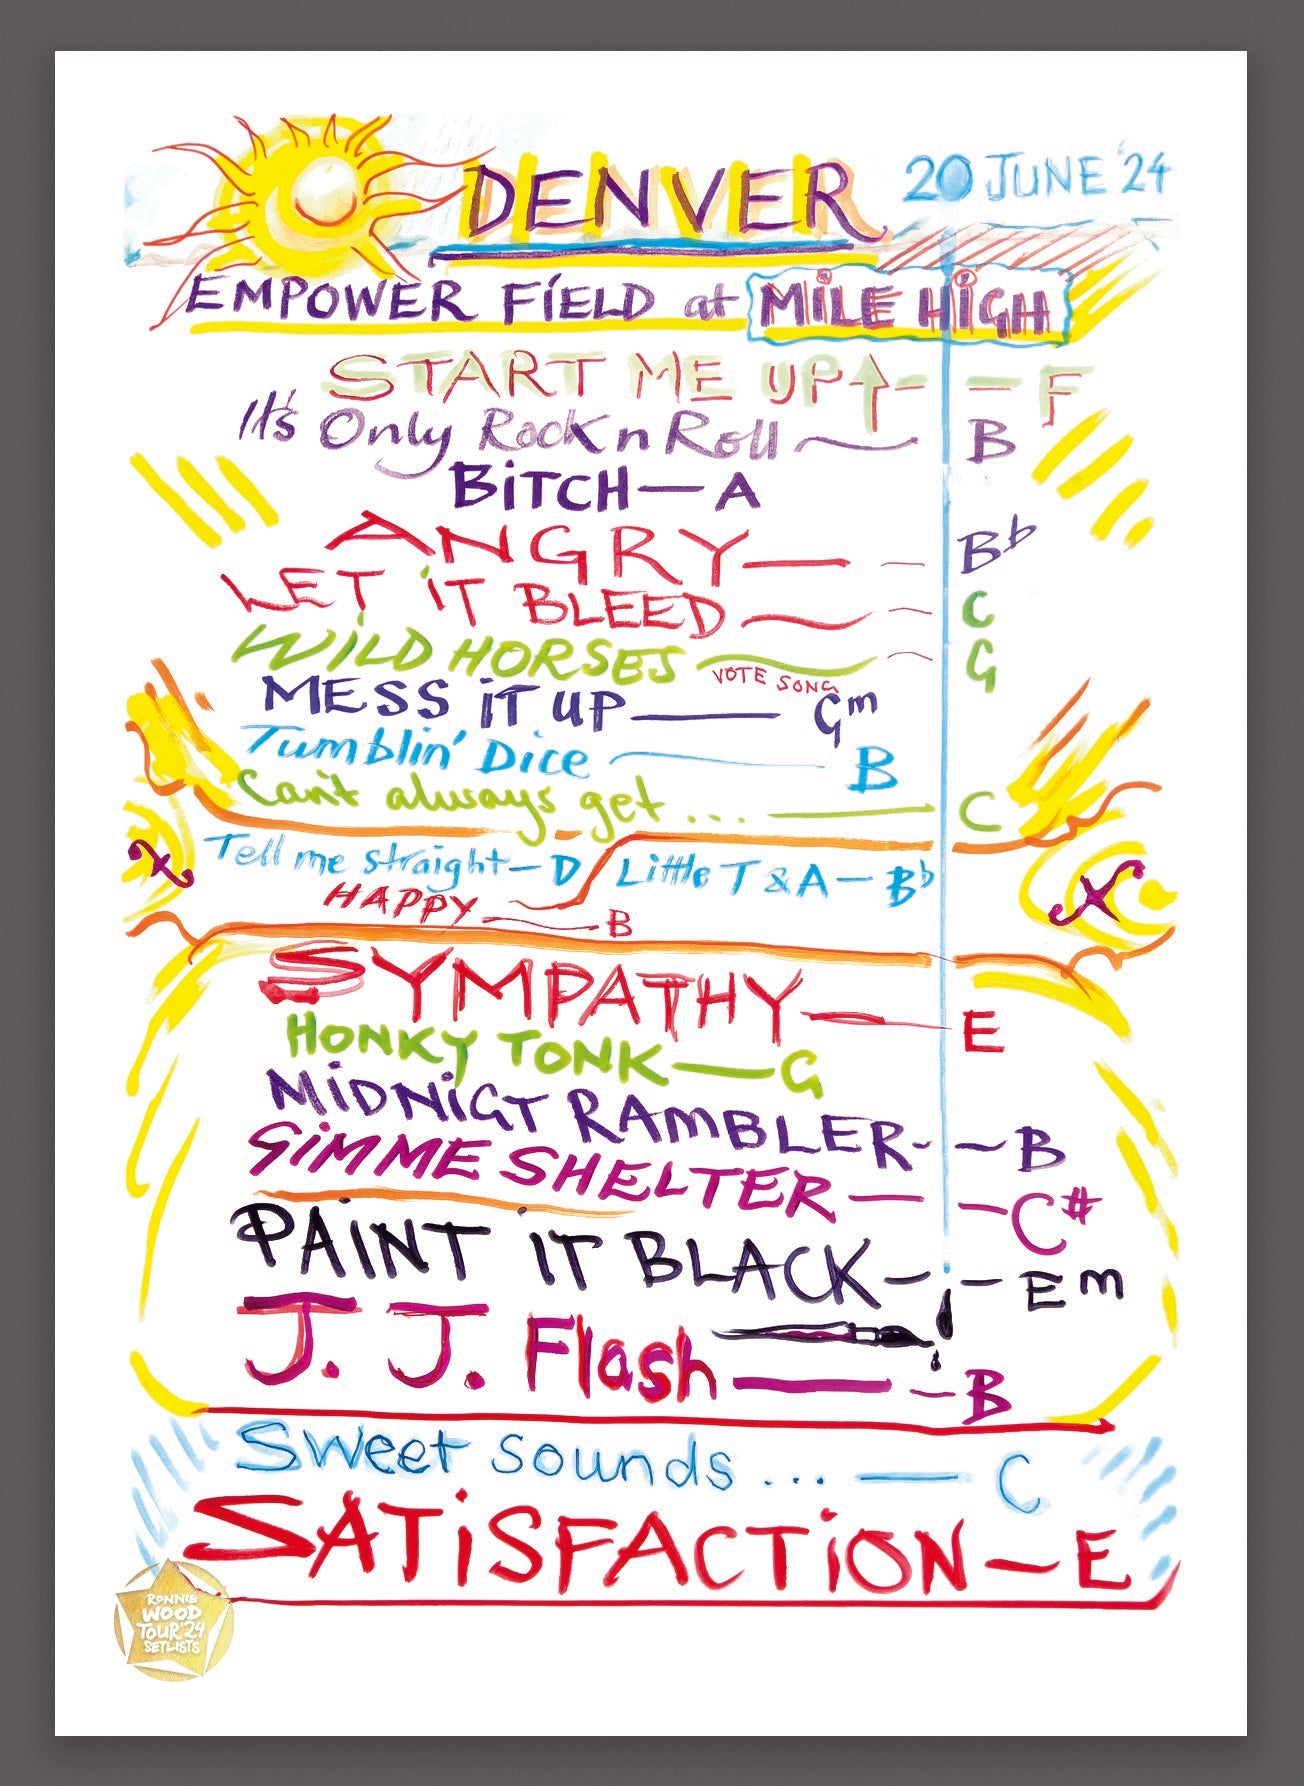 DENVER 20 JUNE '24
EMPOWER FiELD at MiLE HiGH
START ME UP↑ — — F
It's Only Rock n Roll — B
BiTCH — A
ANGRY — — B♭
LET iT BLEED — — C
WiLD HORSES — — G
VOTE SONG
MESS iT UP — Gm
Tumblin' Dice — B
Can't always get... — C
Tell me straight — D / Little T & A — B♭
HAPPY — B
SYMPATHY — E
HONKY TONK — G
MiDNiGT RAMBLER - — B
GiMME SHELTER — — C#
PAiNT iT BLACK — — Em
J. J. Flash — — B
Sweet Sounds ... — C
SATiSFACTiON — E
RONNIE
WOOD
TOUR '24
SETLISTS